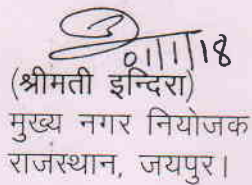 01/1/18
(श्रीमती इन्दिरा)
मुख्य नगर नियोजक
राजस्थान, जयपुर।